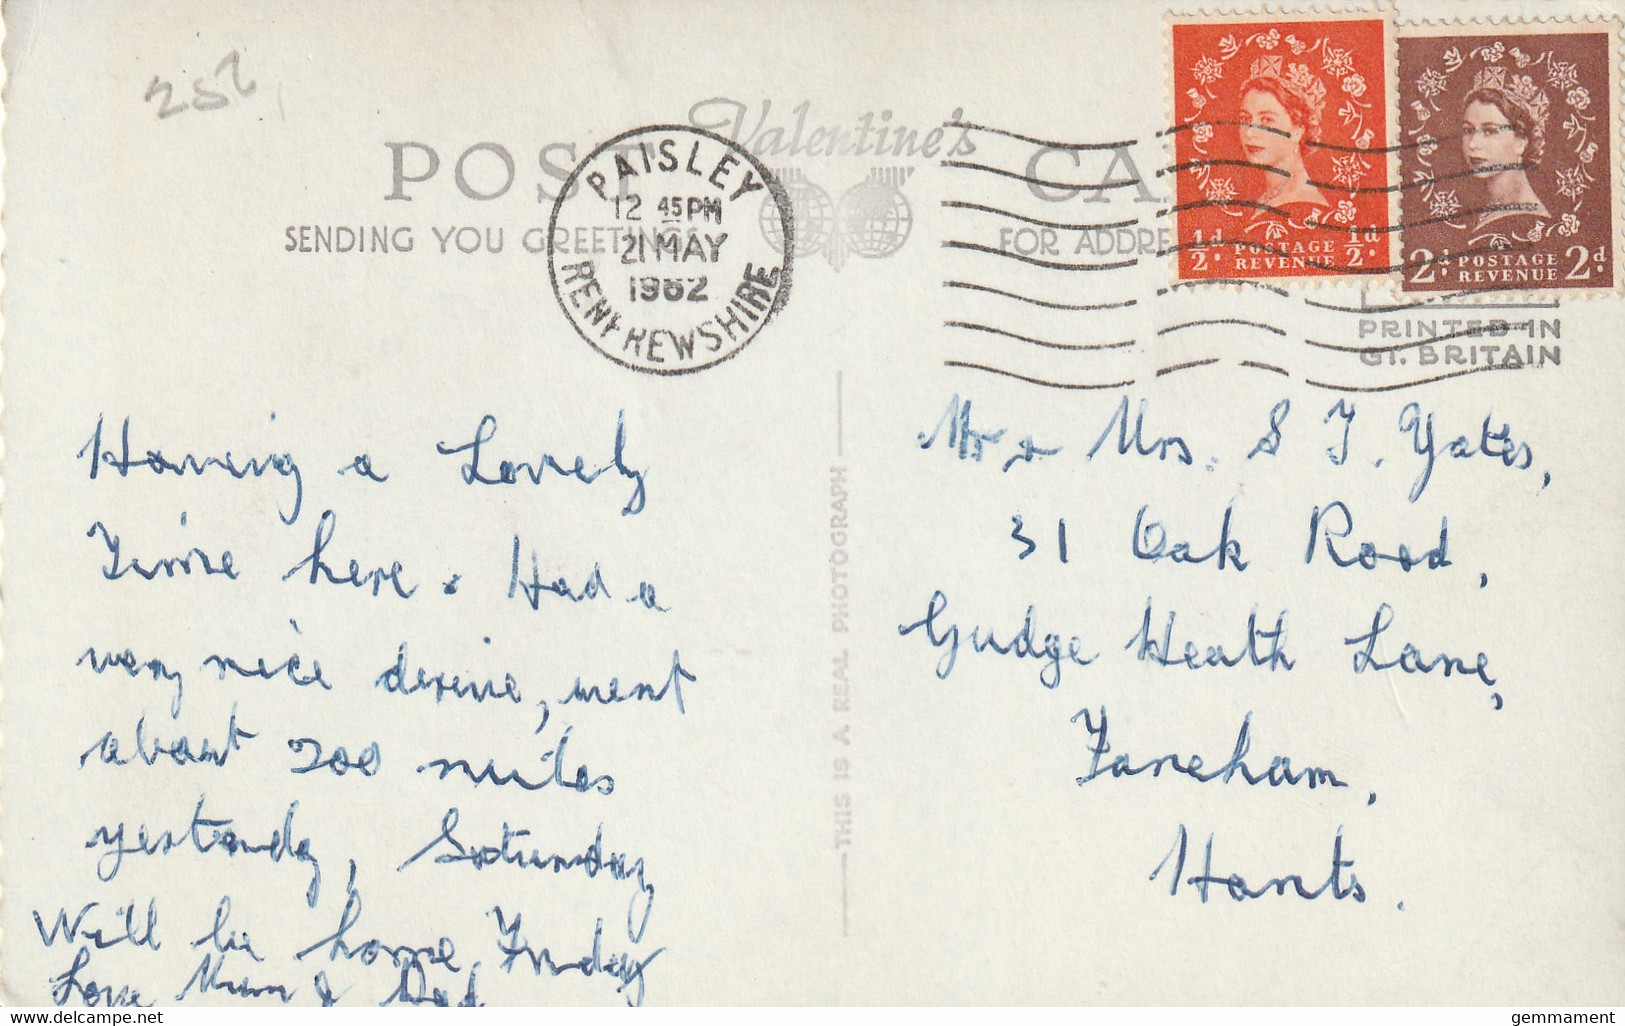 252
POST CA
Valentine's
SENDING YOU GREETINGS
FOR ADDRE
PAISLEY
12 45 PM
21 MAY
1962
RENFREWSHIRE
½d. POSTAGE REVENUE ½d.
2d. POSTAGE REVENUE 2d.
PRINTED IN
GT. BRITAIN
THIS IS A REAL PHOTOGRAPH
Having a Lovely
Time here. Had a
very nice drive, went
about 200 miles
yesterday, Saturday
Will be home Friday
Love Mum & Dad
Mr & Mrs. S J. Yates,
31 Oak Road,
Gudge Heath Lane,
Fareham,
Hants.
www.delcampe.net
gemmament